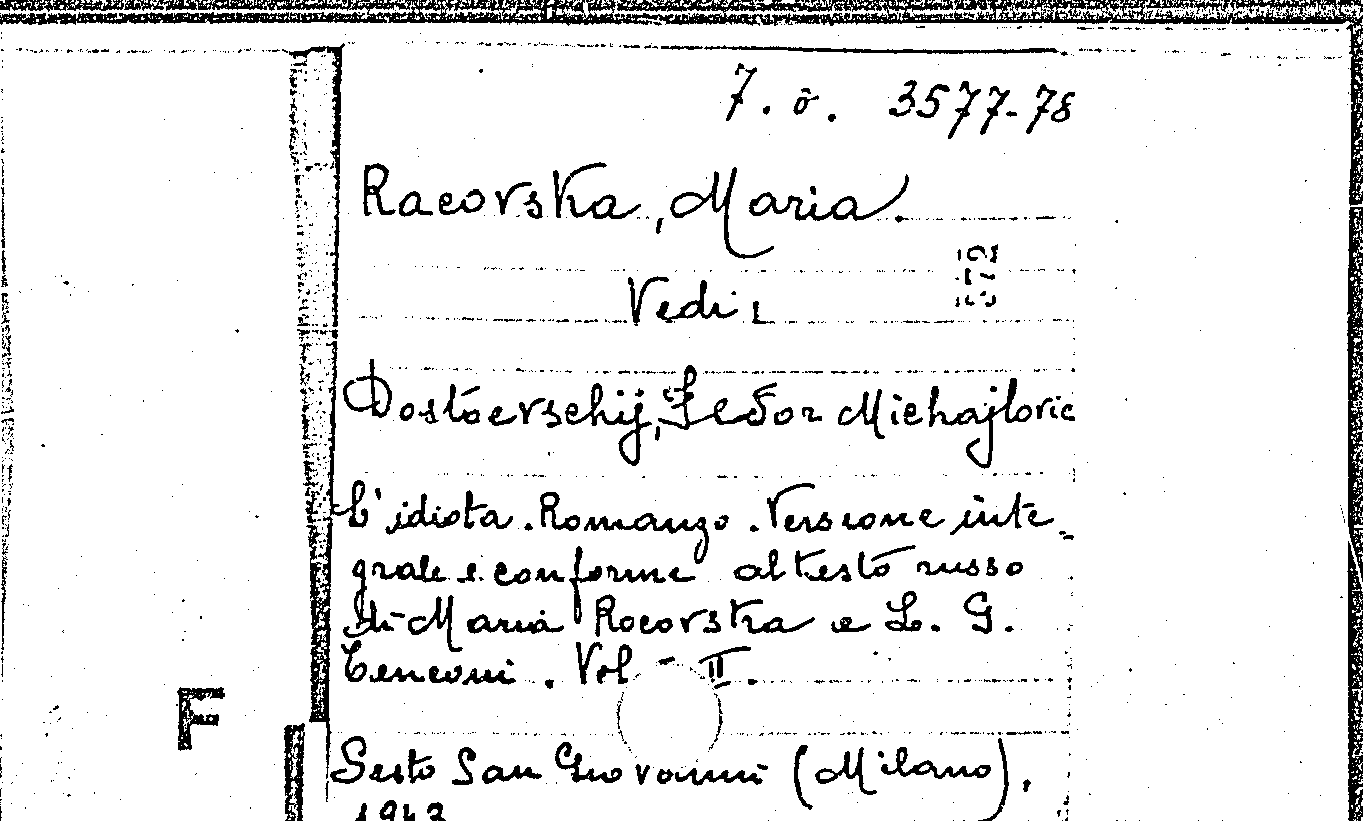 7. ô. 3577-78
Racovska, Maria.
Vedi:
Dostoevschij, Fedor Michajlovic
L'idiota. Romanzo. Versione inte-
grale e conforme al testo russo
di Maria Racovska e L. G.
Tenconi. Vol II.
F
Sesto San Giovanni (Milano),
1943